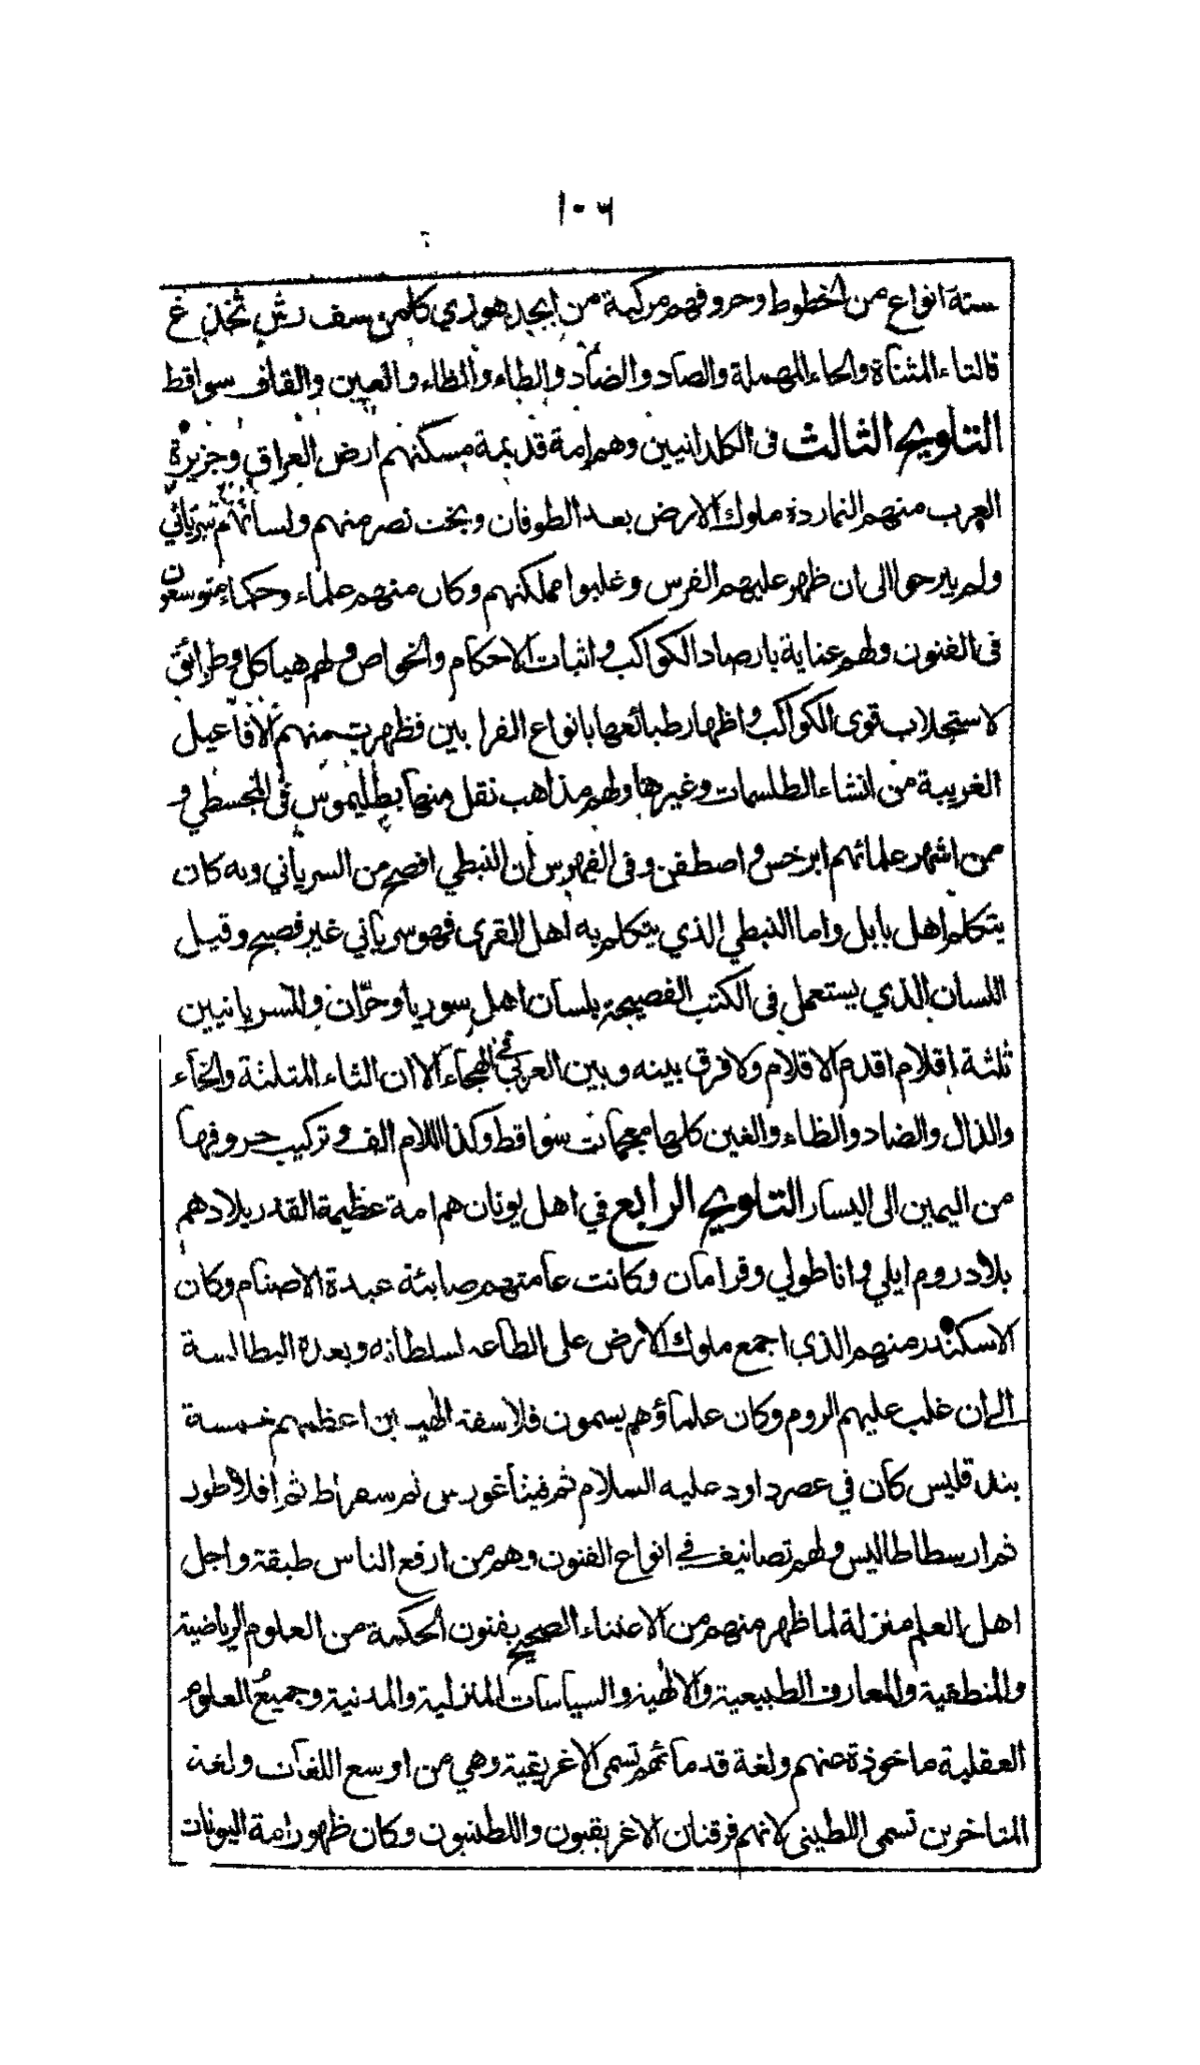 ١٠٦
ستة انواع من الخطوط وحروفهم مركبة من ابجد هوزي كلمن سف رش ثخذ غ
فالتاء المثناة والحاء المهملة والصاد والضاد والطاء والظاء والعين والقاف سواقط
التلويح الثالث فى الكلدانيين وهم امة قديمة مسكنهم ارض العراق وجزيرة
العرب منهم النماردة ملوك الارض بعد الطوفان وبخت نصر منهم ولسانهم سرياني
ولم يبرحوا الى ان ظهر عليهم الفرس وغلبوا مملكتهم وكان منهم علماء وحكماء متوسعون
فى الفنون ولهم عناية بارصاد الكواكب واثبات الاحكام والخواص ولهم هياكل وطرائق
لاستجلاب قوى الكواكب واظهار طبائعها بانواع القرابين فظهرت منهم الافاعيل
الغريبة من انشاء الطلسمات وغيرها ولهم مذاهب نقل منها بطليموس فى المجسطي و
من اشهر علمائهم ابرخس واصطفن وفى الفهرس ان النبطي افصح من السرياني وبه كان
يتكلم اهل بابل واما النبطي الذي يتكلم به اهل القرى فهو سرياني غير فصيح وقيل
اللسان الذي يستعمل فى الكتب الفصيحة بلسان اهل سوريا وحرّان وللسريانيين
ثلثة اقلام اقدم الاقلام ولا فرق بينه وبين العربي فى الهجاء الا ان الثاء المثلثة والخاء
والذال والضاد والظاء والغين كلها معجمات سواقط وكذا اللام الف وتركيب حروفها
من اليمين الى اليسار التلويح الرابع في اهل يونان هم امة عظيمة القدر بلادهم
بلاد روم ايلي واناطولي وقرامان وكانت عامتهم صابئة عبدة الاصنام وكان
الاسكندر منهم الذي اجمع ملوك الارض على الطاعه لسلطانه وبعده البطالسة
الى ان غلب عليهم الروم وكان علماؤهم يسمون فلاسفة الهيين اعظمهم خمسة
بندقليس كان في عصر داود عليه السلام ثم فيثاغورس ثم سقراط ثم افلاطون
ثم ارسطاطاليس ولهم تصانيف في انواع الفنون وهم من ارفع الناس طبقة واجل
اهل العلم منزلة لما ظهر منهم من الاعتناء الصحيح بفنون الحكمة من العلوم الرياضية
والمنطقية والمعارف الطبيعية والالهية والسياسات المنزلية والمدنية وجميع العلوم
العقلية ماخوذة عنهم ولغة قدمائهم تسمى الاغريقية وهي من اوسع اللغات ولغة
المتاخرين تسمى اللطينى لانهم فرقتان الاغريقيون واللطنيون وكان ظهور امة اليونان